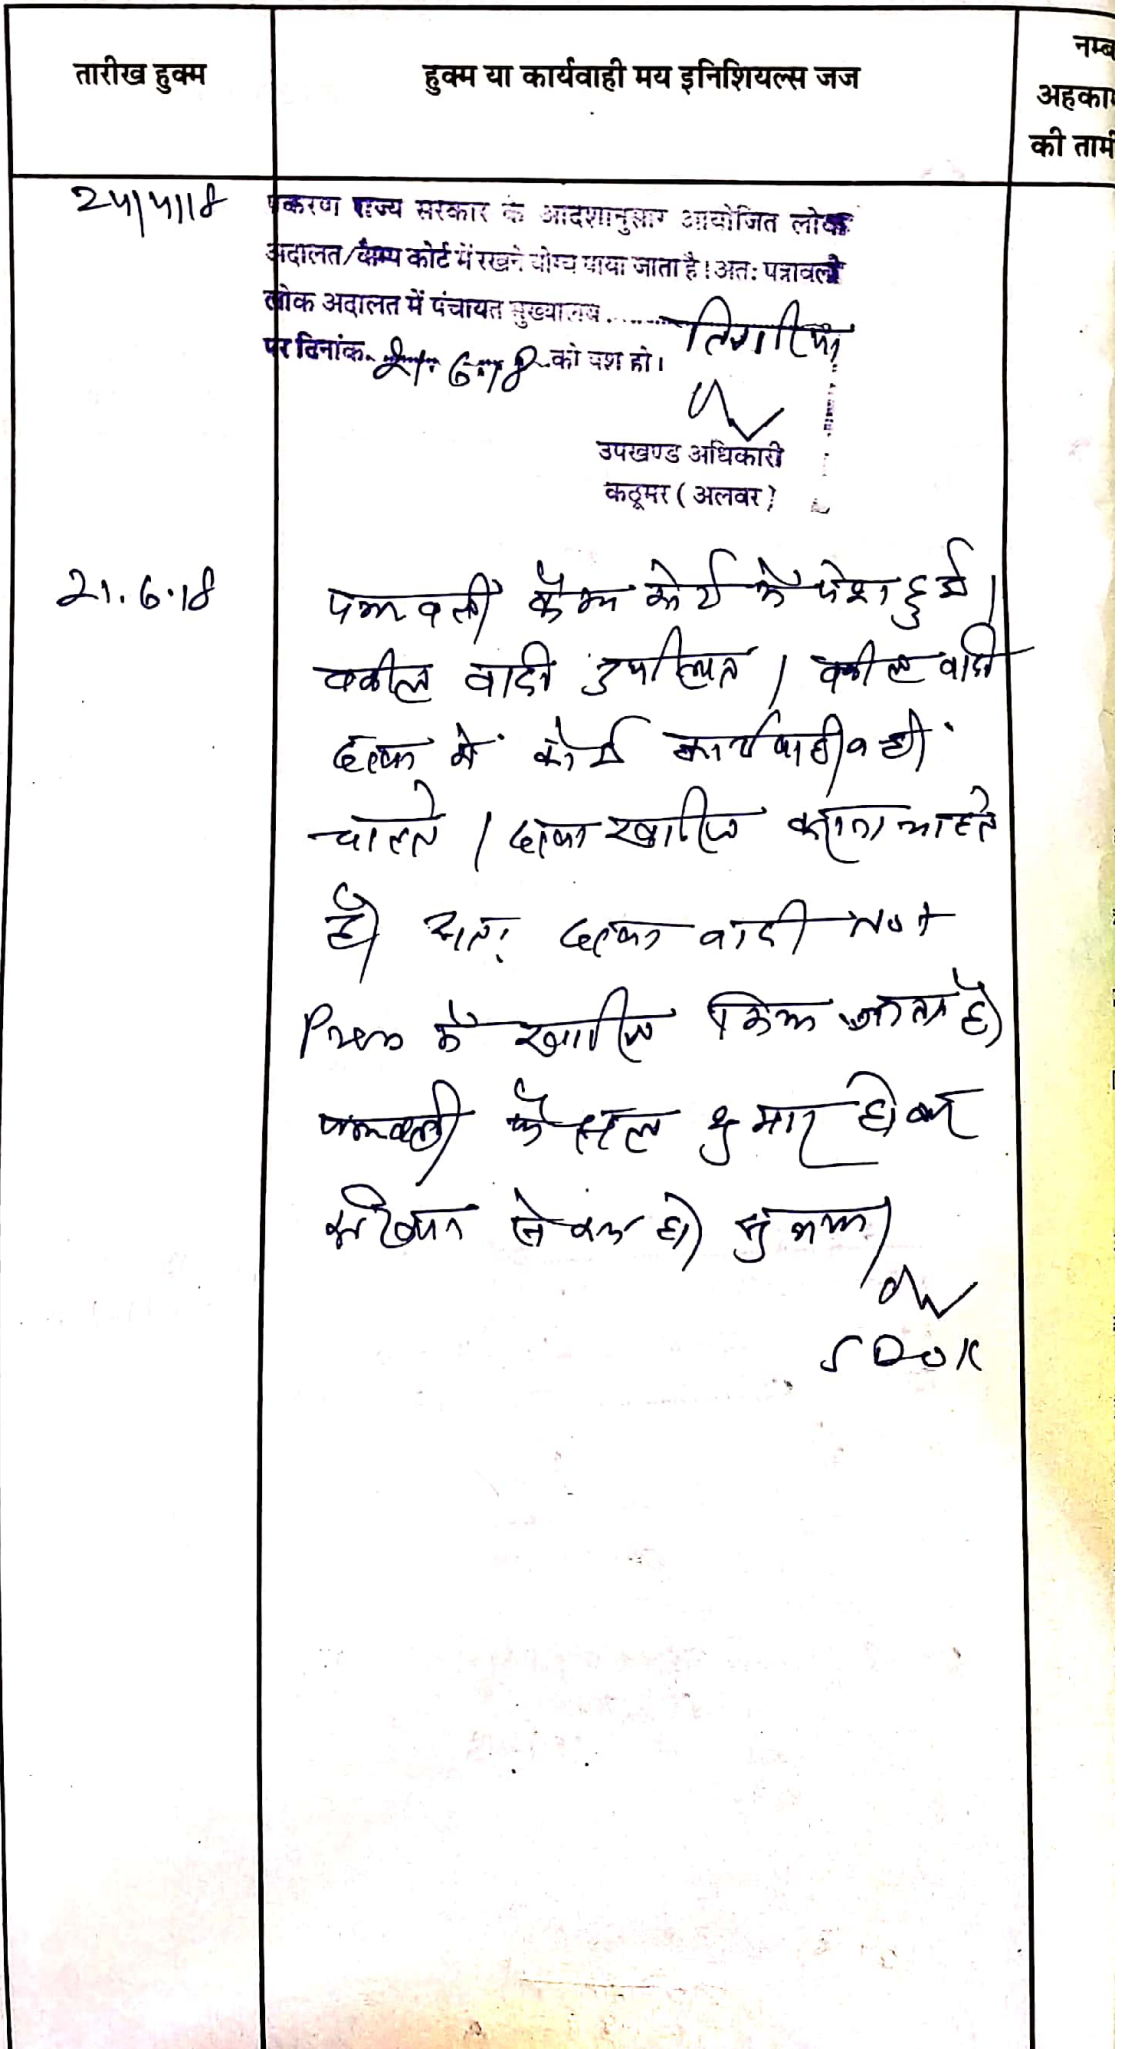 तारीख हुक्म
हुक्म या कार्यवाही मय इनिशियल्स जज
नम्ब
अहका
की ताम
24/4/18
प्रकरण राज्य सरकार के आदेशानुसार आयोजित लोक
अदालत/कैम्प कोर्ट में रखने योग्य पाया जाता है। अतः पत्रावली
लोक अदालत में पंचायत मुख्यालय
पर दिनांक 21.6.18 को पेश हो।
उपखण्ड अधिकारी
कठूमर (अलवर)
21.6.18
पत्रावली कैम्प कोर्ट में पेश हुई।
वकील वादी उपस्थित। वकील वादी
में कोई कार्यवाही नहीं
चाहते। खारिज कराना चाहते
है। अतः वादी Not
Press में खारिज किया जाता है।
पत्रावली फैसल शुमार होकर